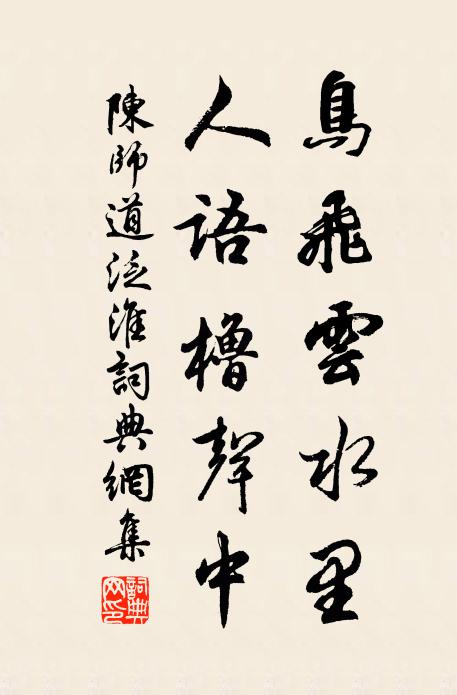 鳥飛雲水里
人語櫓聲中
陳師道泛淮詞典網集
詞典網印